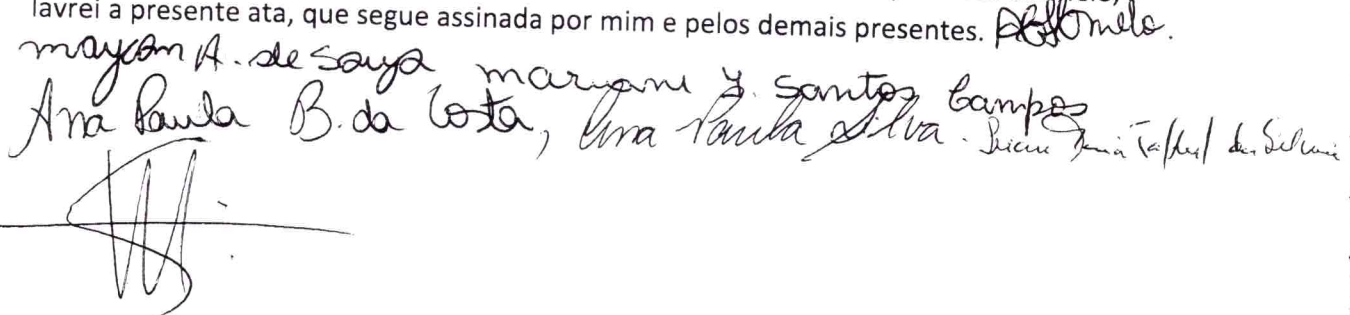 lavrei a presente ata, que segue assinada por mim e pelos demais presentes.
maycon A. de Souza mariani J. Santos Campos
Ana Paula B. da Costa, Ana Paula Silva.